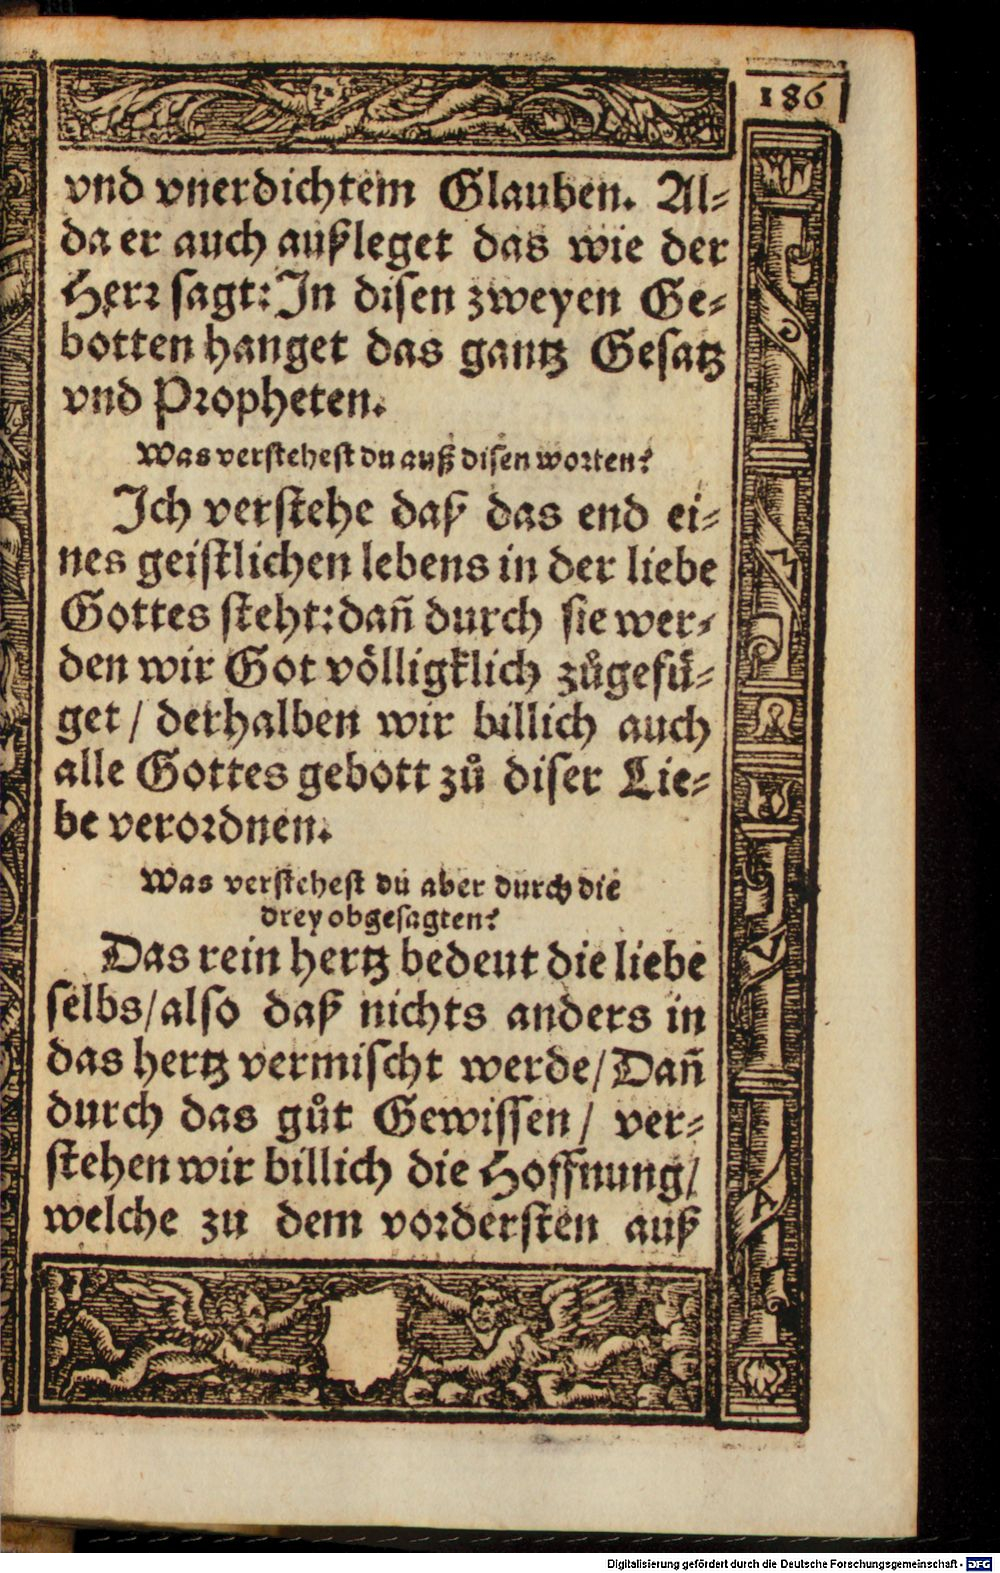 186
vnd vnerdichtem Glauben. Al-
da er auch außleget das wie der
Herr sagt: In disen zweyen Ge-
botten hanget das gantz Gesatz
vnd Propheten.
Was verstehest du auß disen worten?
Ich verstehe daß das end ei-
nes geistlichen lebens in der liebe
Gottes steht: dañ durch sie wer-
den wir Got völligklich zůgefü-
get / derhalben wir billich auch
alle Gottes gebott zů diser Lie-
be verordnen.
Was verstehest du aber durch die
drey obgesagten?
Das rein hertz bedeut die liebe
selbs / also daß nichts anders in
das hertz vermischt werde / Dañ
durch das gůt Gewissen / ver-
stehen wir billich die Hoffnung /
welche zu dem vordersten auß
Digitalisierung gefördert durch die Deutsche Forschungsgemeinschaft - DFG